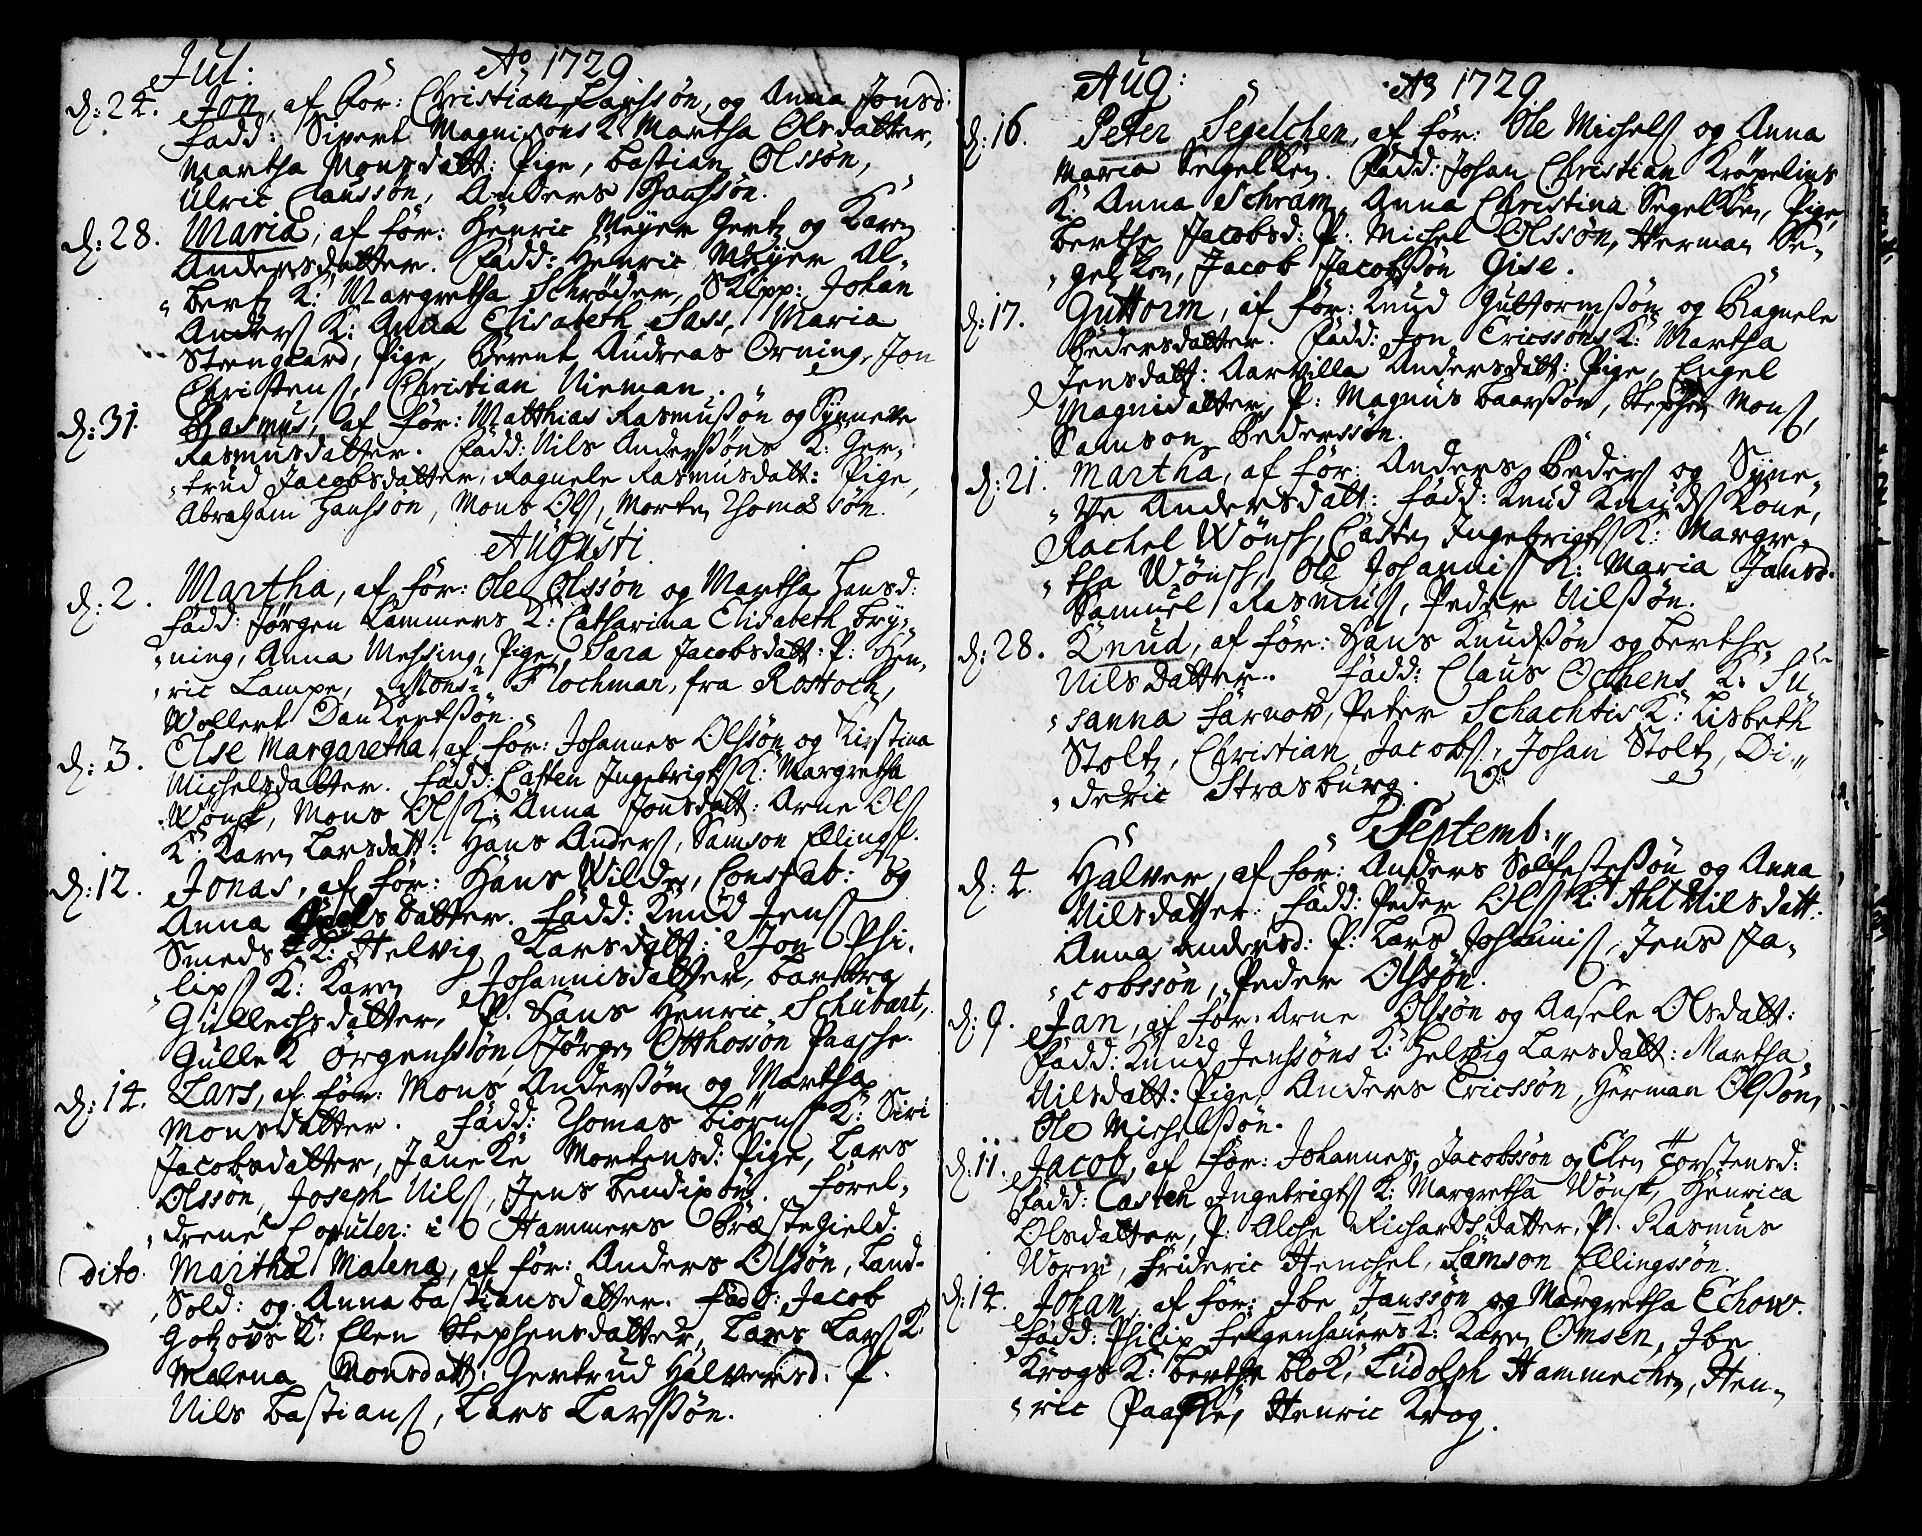 Jul: Ao 1729
d: 24. Jon, af för: Christian Larssön, og Anna Jonsd:
fadd: Sivert Magnisöns K: Martha Olsdatter,
Martha Monsdatt: Pige, bastian Olssön,
Ulric Claussön, Anders Hanssön.
d: 28. Maria, af för: Henric Meyer Gertz og Karen
Andersdatter. fadd: Henric Meyer Al-
bertz K: Margretha Schröder, Skipp: Johan
Anders K: Anna Elisabeth Sass, Maria
Steengaard, Pige, Berent Andreas Orning, Jon
Christens, Christian Nieman.
d: 31. Rasmus, af för: Matthias Rasmussön og Synneve
Rasmusdatter. fadd: Nils Anderssöns K: Ger-
trud Jacobsdatter, Ragnele Rasmusdatt: Pige,
Abraham Hanssön, Mons Ols, Morten Thomassön.
Augusti
d: 2. Martha, af för: Ole Olssön og Martha Hansd:
fadd: Jörgen Lammers K: Catharina Elisabeth Bry-
ning, Anna Messing, Pige, Sara Jacobsdatt: P: Hen-
ric Lampe, Monsr Flochman, fra Rostock,
Wollert Dankertssön.
d: 3. Else Margaretha, af för: Johannes Olssön og Kirstina
Michelsdatter. fadd: Casten Ingebrigts K: Margretha
Wönsk, Mons Ols K: Anna Jonsdatt: Arne Ols
K: Karen Larsdatt: Hans Anders, Samson Ellings.
d: 12. Jonas, af för: Hans Wilde, Constab: og
Anna datter. fadd: Knud Jens
Smeds K: Helvig Larsdatt: Jon Phi-
lips K: Karen Johannisdatter, barbra
Gullechsdatter, P. Hans Henric Schubart,
Gullek Örgenssön, Jörgen Otthossön Paasche.
d: 14. Lars, af för: Mons Anderssön og Martha
Monsdatter. fadd: Thomas biörns K: Siri
Jacobsdatter, Janeke Mortensd: Pige, Lars
Olssön, Joseph Nils, Jens bendixön. förel-
drene Copuler: i Hammers Præstegield.
dito. Martha Malena, af för: Anders Olssön, Land-
Sold: og Anna bastiansdatter. fadd: Jacob
Gotzovs K: Elen Stephensdatter, Lars Lars K:
Malena Monsdatt: Gertrud Halversd: P.
Nils bastians, Lars Larssön.
Aug: Ao 1729
d: 16. Peter Segelchen, af för: Ole Michels og Anna
Maria Segelken. fadd: Johan Christian Kröpelins
K: Anna Schram, Anna Christina Segelken, Pige,
berthe Jacobsd: P: Michel Olssön, Herman Se-
gelken, Jacob Jacobssön Gise.
d: 17. Guttorm, af för: Knud Guttormssön og Ragnele
Pedersdatter. fadd: Jon Ericssöns K: Martha
Jensdatt: Aarvilla Andersdatt: Pige, Engel
Magnidatter, P: Magnus baarssön, Stephen Mons,
Samson Pederssön.
d: 21. Martha, af för: Anders Peders og Syne-
ve Andersdatt: fadd: Knud Knuds Kone,
Rachel Wönsk, Casten Ingebrigts K: Margre-
tha Wönsk, Ole Johannis K: Maria Jansd.
Samuel Rasmus, Peder Nilssön.
d: 28. Knud, af för: Hans Knudssön og berthe
Nilsdatter. fadd: Claus Ochens K: Su-
sanna farnow, Peter Schachtis K: Lisbeth
Stoltz, Christian Jacobs, Johan Stoltz, Di-
deric Strasburg.
Septemb:
d: 4. Halver, af för: Anders Solfestessön og Anna
Nilsdatter: fadd: Peder Ols K: Ahl Nilsdatt:
Anna Andersd: P: Lars Johannis, Jens Ja-
cobssön, Peder Olssön.
d: 9. Jan, af för: Arne Olssön og Aasele Olsdatt:
fadd: Knud Jenssöns K: Helvig Larsdatt: Martha
Nilsdatt: Pige, Anders Ericssön, Herman Olssön,
Ole Michelssön.
d: 11. Jacob, af för: Johannes Jacobssön og Elen Torstensd:
fadd: Casten Ingebrigts K: Margretha Wönsk, Henrica
Olsdatter, P: Alche Richardsdatter, P: Rasmus
Worm, fridericHenchel, Samson Ellingssön.
d: 14. Johan, af för: Ibe Janssön og Margretha Echow.
fadd: Philip felgenhauers K: Karen Omsen, Ibe
Krogs K: berthe blok, Ludolph Hammechen, Hen-
ric Paasche, Henric Krog.